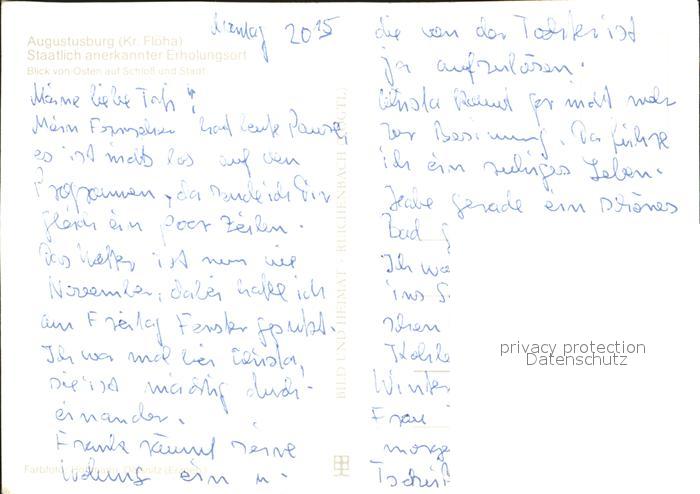 Montag 20 15
Augustusburg (Kr. Flöha)
Staatlich anerkannter Erholungsort
Blick von Osten auf Schloß und Stadt
Meine liebe
Mein Fernseher hat heute Pause,
es ist nichts los auf den
Programmen, da sende ich Dir
gleich ein paar Zeilen.
Das Wetter ist nun wie
November, dabei habe ich
am Freitag Fenster geputzt.
Ich war mal bei
sie ist mächtig durch-
einander.
räumt seine
ein u.
Farbfoto:
BILD UND HEIMAT REICHENBACH (VOGTL)
die von der ist
ja aufzulösen.
kommt gar nicht mehr
zur Besinnung. Da führe
ich ein ruhiges Leben.
Habe gerade ein schönes
Bad g
Ich wa
ins S
schen
Winter
Frau
morge
privacy protection
Datenschutz